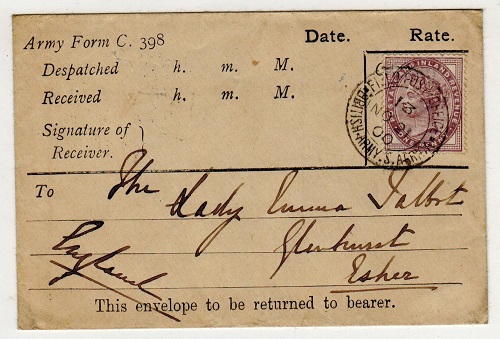 Army Form C. 398 Date. Rate.
Despatched h. m. M.
Received h. m. M.
Signature of
Receiver.
INLAND REVENUE
FIELD POST OFFICE
BRITISH ARMY S. AFRICA
NO 21
00
To The
Lady Emma Talbot
Glenhurst
Esher
England
This envelope to be returned to bearer.